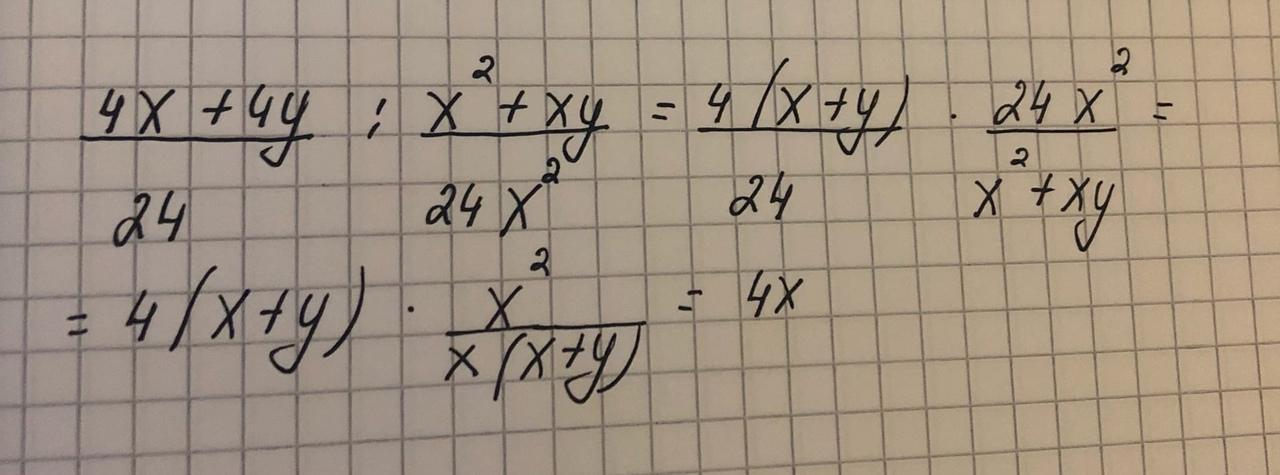 4x + 4y / 24 : x² + xy / 24x² = 4(x+y) / 24 · 24x² / x² + xy =
= 4(x+y) · x² / x(x+y) = 4x